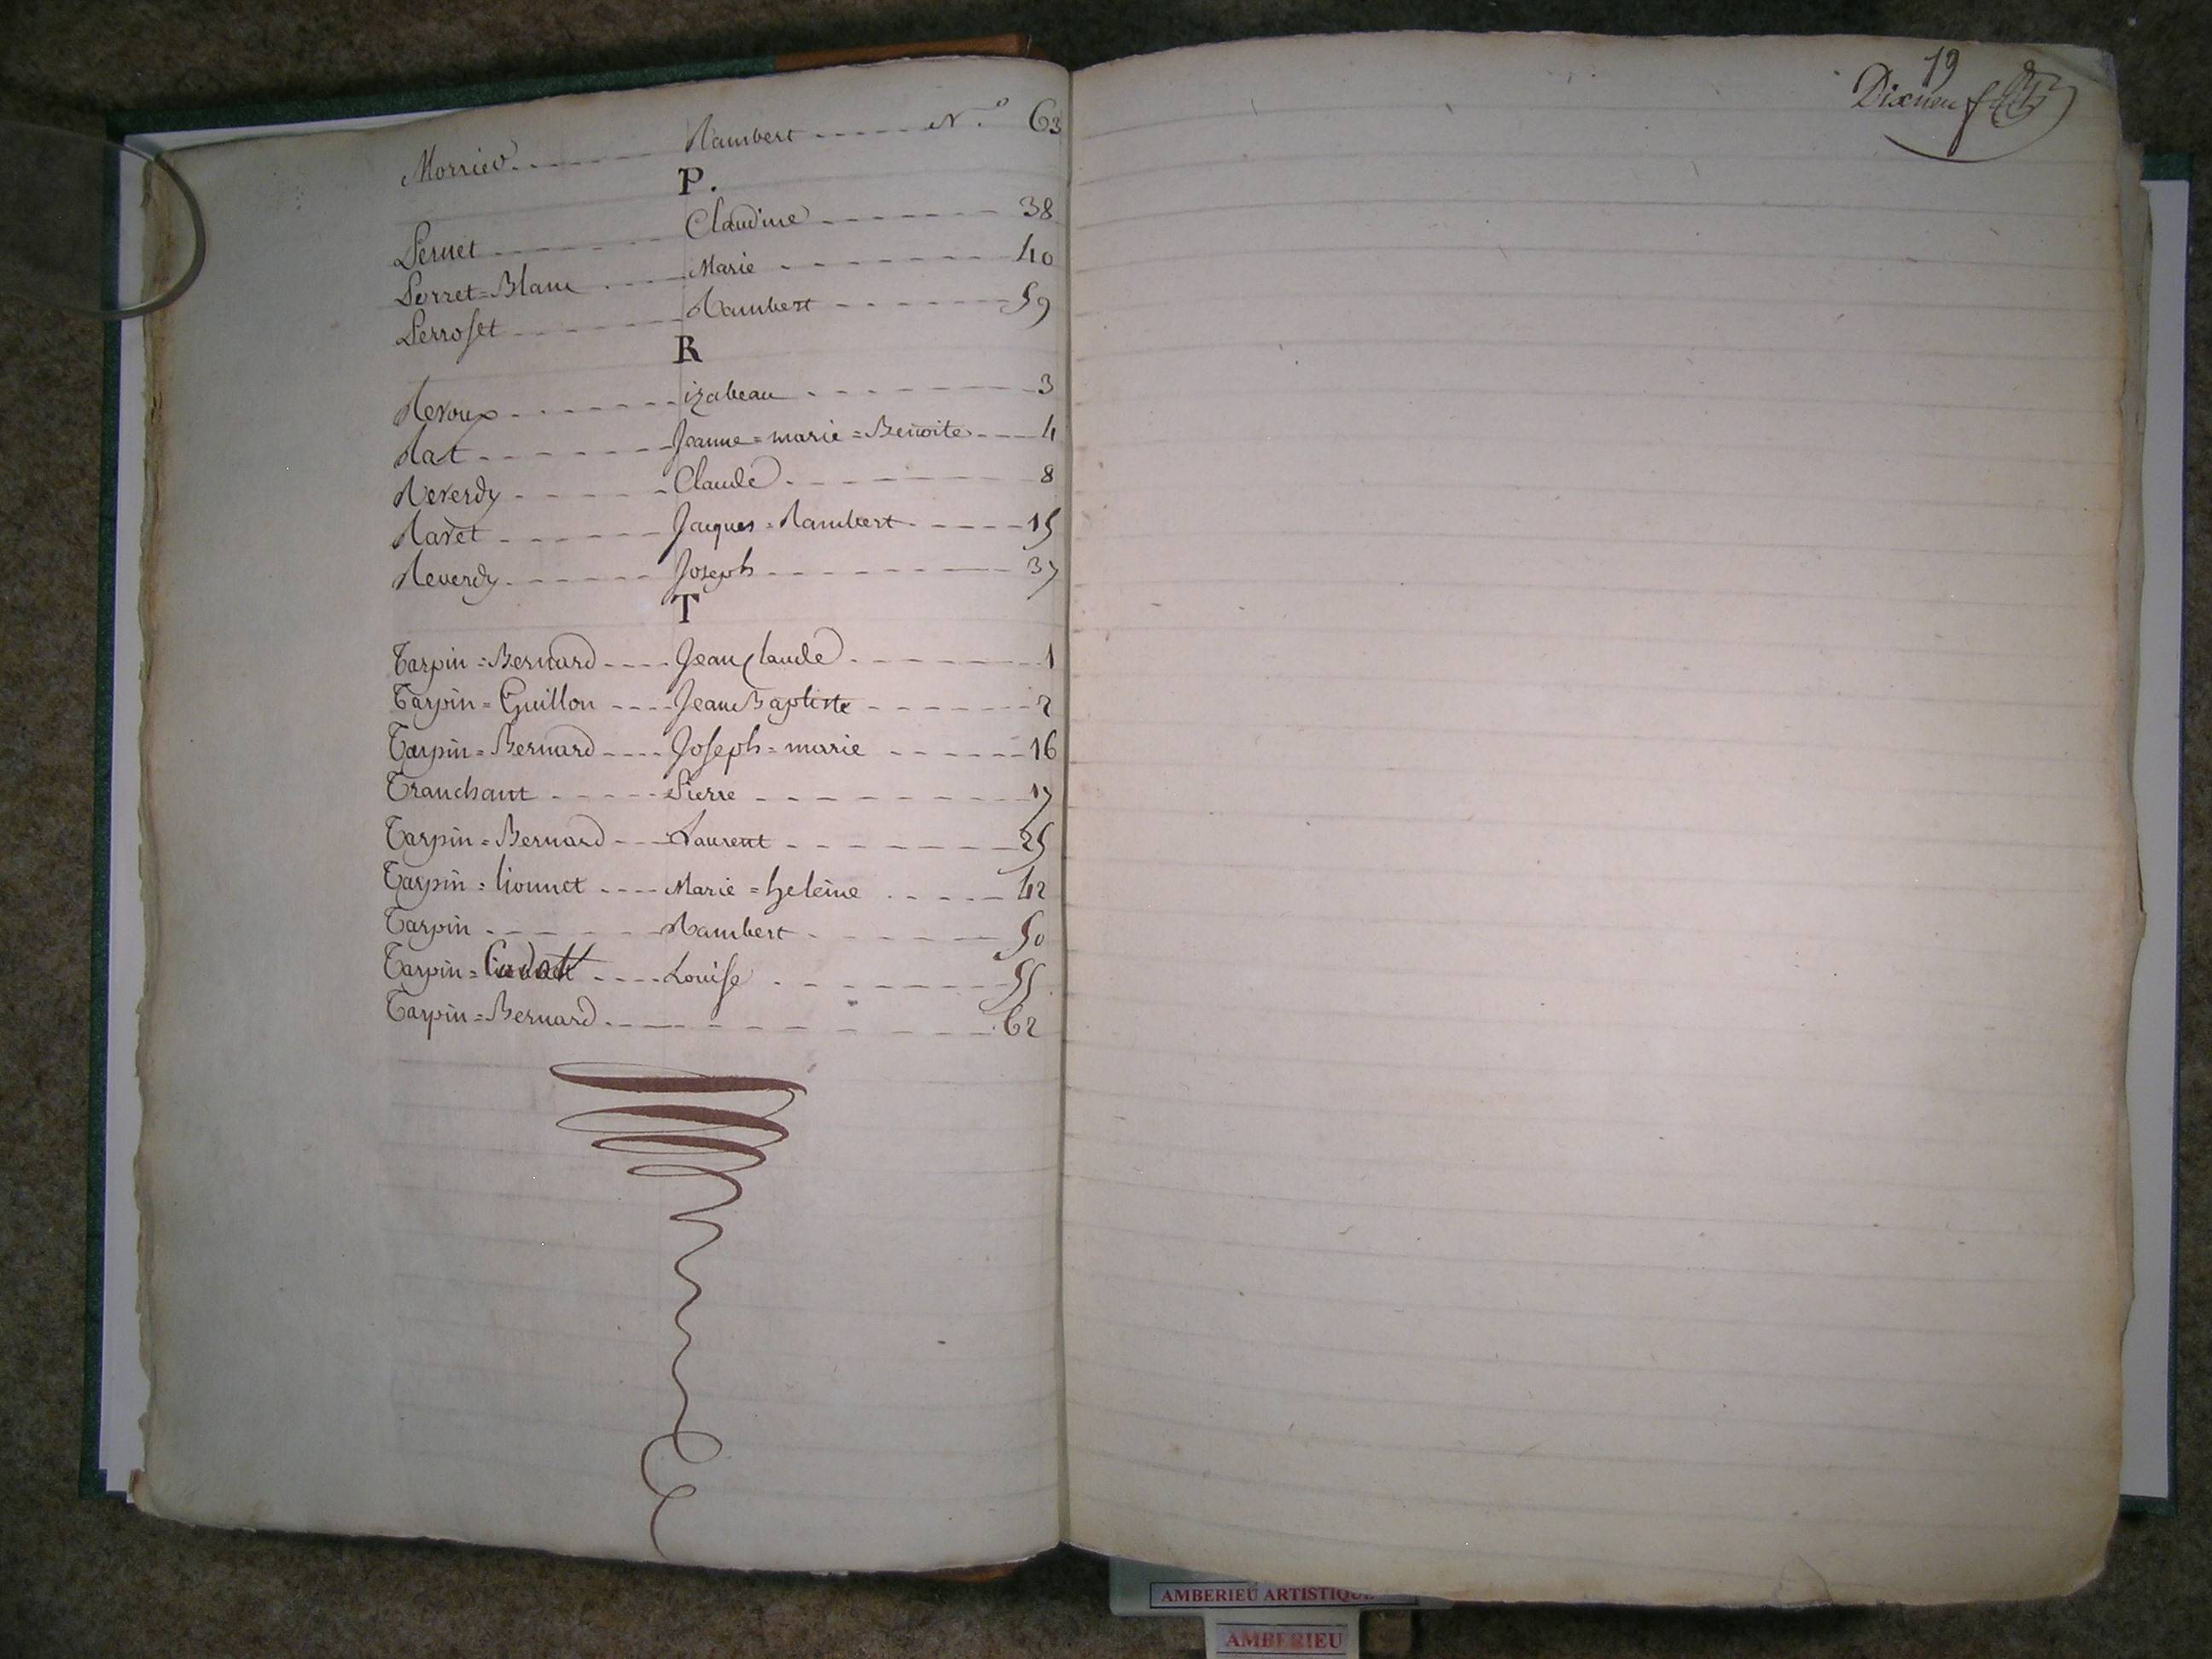 Morrier Rambert N.° 63
P.
Pernet Claudine 38
Perret=Blanc Marie 40
Perroset Rambert 59
R
Reroux izabeau 3
Rat Jeanne=marie=Benoite 4
Reverdy Claude 8
Ravet Jacques=Rambert 15
Reverdy Joseph 37
T
Tarpin=Bernard Jean Claude 1
Tarpin=Guillon Jean Baptiste 2
Tarpin=Bernard Joseph=marie 16
Tranchant Pierre 17
Tarpin=Bernard Laurent 25
Tarpin=lionnet Marie=heleine 42
Tarpin Rambert 50
Tarpin= Louise 55
Tarpin=Bernard 62
19
Dixneuf
AMBERIEU ARTISTIQUE
AMBERIEU